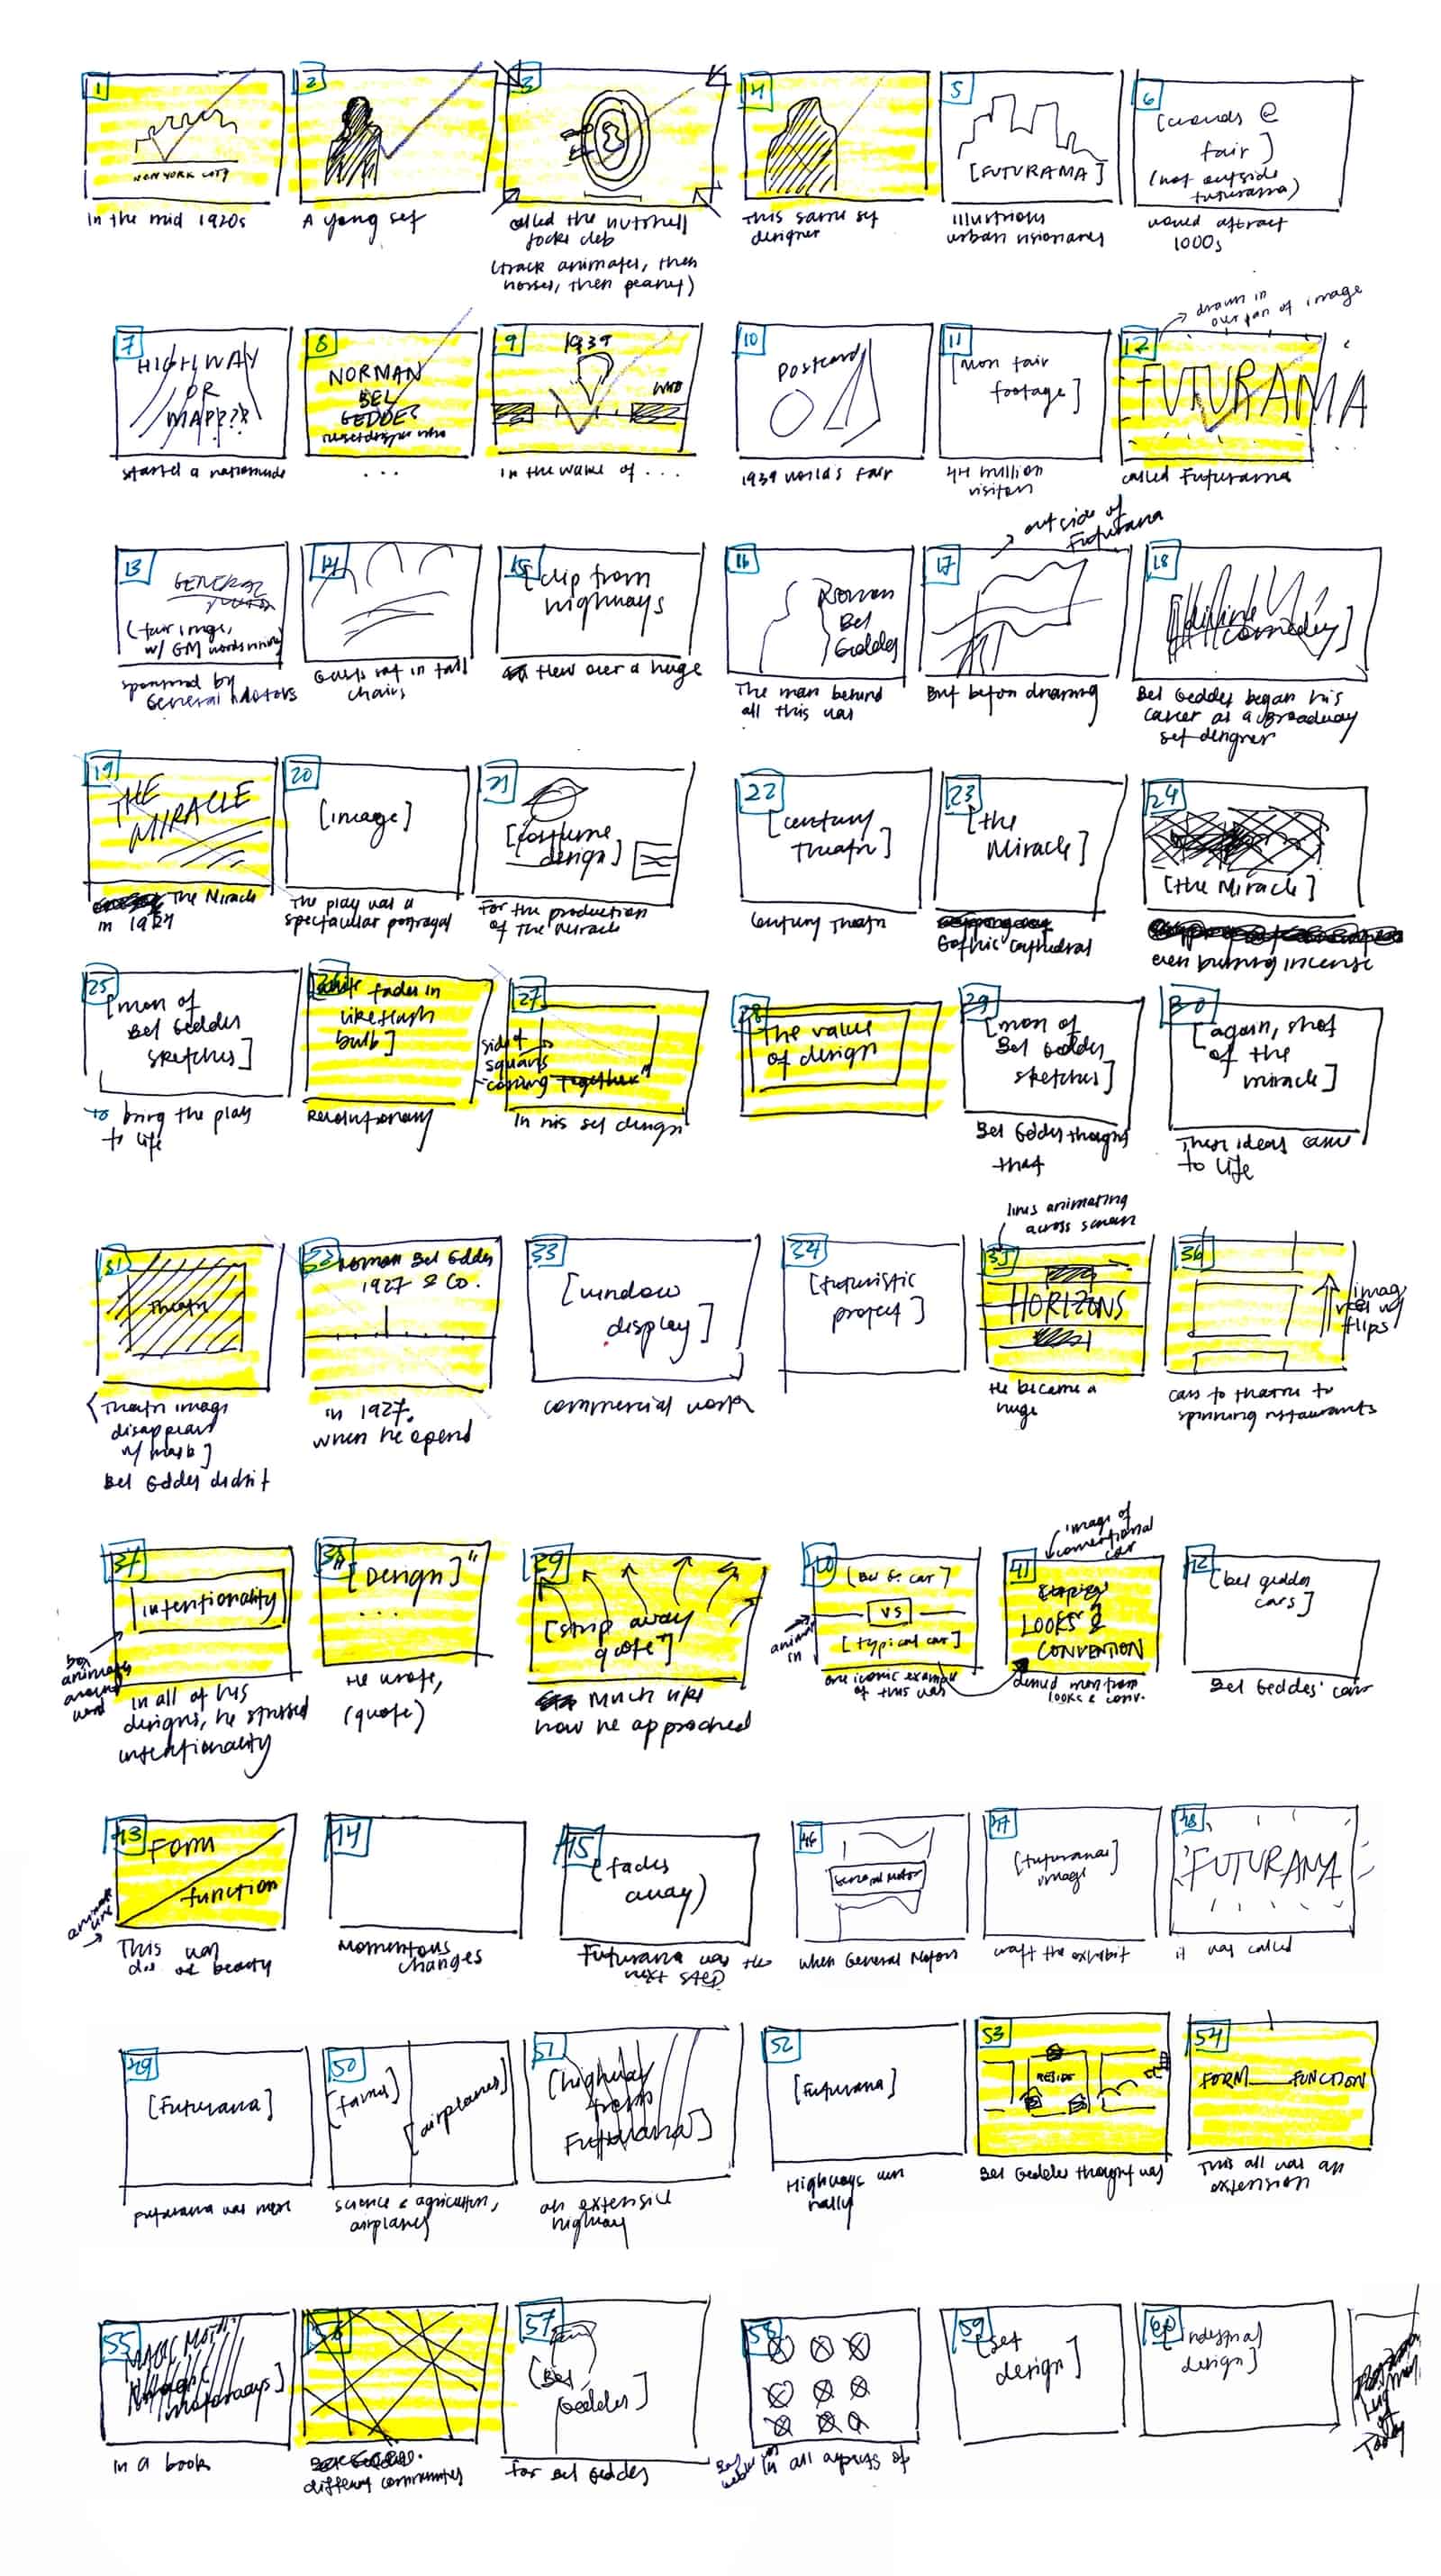 1
NEW YORK CITY
In the mid 1920s
2
A young set
3
called the nutshell
jocke club
(track animates, then
horses, then peanut)
4
This same set
designer
5
[FUTURAMA]
Illustrious
urban visionaries
6
[crowds @
fair]
(not outside
futurama)
would attract
1000s
7
HIGHWAY
OR
MAP???
started a nationwide
8
NORMAN
BEL
GEDDES
...
9
1939
WWII
in the wake of ...
10
Postcard
1939 world's fair
11
[mon fair
footage]
44 million
visitors
12
drawn in
over pan of image
FUTURAMA
called Futurama
13
GENERAL
(fair image,
w/ GM words
sponsored by
General Motors
14
Guests sat in tall
chairs
15
[clip from
highways
flew over a huge
16
Norman
Bel
Geddes
The man behind
all this was
17
outside of
Futurama
But before dreaming
18
[divine
comedy]
Bel Geddes began his
career as a Broadway
set designer
19
THE
MIRACLE
The Miracle
in 1924
20
[image]
The play was a
spectacular portrayal
21
[costume
design]
For the production
of The Miracle
22
[century
theatr]
Century Theatr
23
[the
Miracle]
Gothic Cathedral
24
[the Miracle]
even burning incense
25
[mon of
Bel Geddes
sketches]
to bring the play
to life
26
fades in
like flash
bulb]
Revolutionary
27
side of
squares
"coming together"
In his set design
28
The value
of design
29
[mon of
Bel Geddes
sketches]
Bel Geddes thought
that
30
[again, shot
of the
miracle]
These ideas came
to life
31
Theatr
[Theatr image
disappears
w/ mask]
Bel Geddes didn't
32
Norman Bel Geddes
1927 & Co.
in 1927.
when he opened
33
[window
display]
commercial work
34
[futuristic
project]
35
lines animating
across screen
HORIZONS
He became a
huge
36
flips
cars to theatre to
spinning restaurants
37
intentionality
box
animates
around
word
In all of his
designs, he stressed
intentionality
38
"[Design]"
...
He wrote,
(quote)
39
[strip away
quote"]
Much like
how he approached
40
[Bel G. car]
VS
[typical car]
animate
in
one iconic example
of this was
41
image of
conventional
car
LOOKS &
CONVENTION
looks & conv.
42
[bel geddes
cars]
Bel Geddes' cars
43
Form
function
animate
line
This was
beauty
44
Momentous
changes
45
(fades
away)
Futurama was the
next step
46
General Motors
when General Motors
47
[futurama
image]
craft the exhibit
48
FUTURAMA
it was called
49
[Futurama]
Futurama was more
50
[farms]
[airplanes]
science & agriculture,
airplanes
51
[highway
from
Futurama]
an extensive
highway
52
[Futurama]
Highways were
really
53
Bel Geddes thought was
54
FORM FUNCTION
This all was an
extension
55
MAGIC MOT
motorways]
in a book
56
different communities
57
[Bel
Geddes]
for Bel Geddes
58
in all aspects of
59
[set
design]
60
[industrial
design]
Today